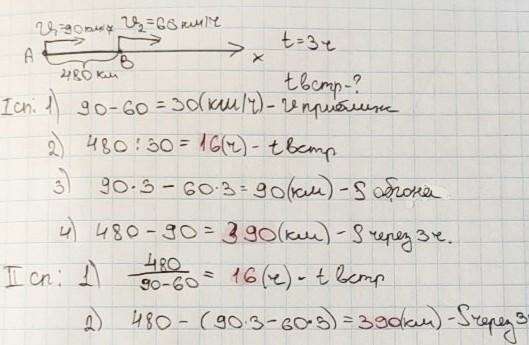 V₁=90км/ч V₂=60км/ч
A B x t=3ч
480 км
tвстр-?
I сп. 1) 90-60=30(км/ч)-Vприближ
2) 480:30=16(ч)-tвстр
3) 90·3-60·3=90(км)-S обгона
4) 480-90=390(км)-S через 3ч.
II сп: 1) 480/90-60=16(ч)-t встр
2) 480-(90·3-60·3)=390(км)-S через 3